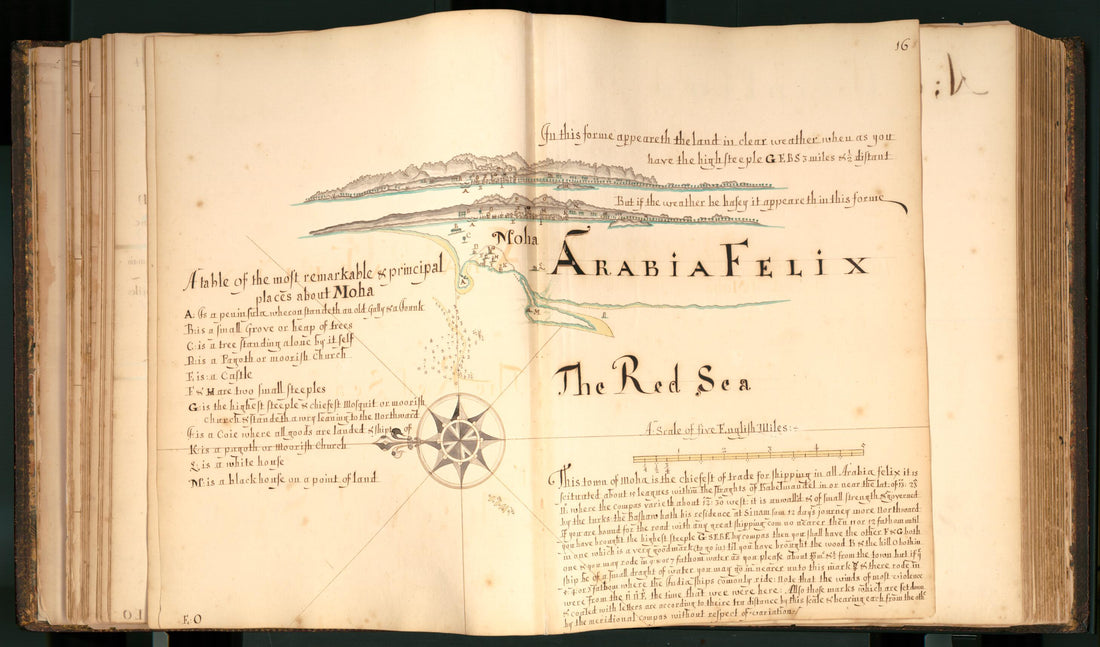 16
In this forme appeareth the land in clear weather when as you
have the high steeple G E B S 3 miles & ½ distant
But if the weather be hasey it appeareth in this forme
Moha
Arabia Felix
A table of the most remarkable & principal
places about Moha
A: Is a peninsula wheron standeth an old gally & a Jounk
B: is a small Grove or heap of trees
C: is a tree standing alone by it self
D: is a Pagoth or moorish Church
E is: a Castle
F & H are two small steeples
G: is the highest steeple & chiefest Mosquit or moorish
Church & standeth a wry leaning to the Northward
I: is a Coie where all goods are landed & shipt of
K: is a pagoth or Moorish Church
L: is a white house
M: is a black house on a point of land
The Red Sea
A Scale of five English Miles:
This town of Moha is the chiefest of trade for shipping in all Arabia felix it is
scituated about 11 leagues within the straghts of Babelmandel in or near the lat: of 13: 28
N: where the compas varieth about 12: 30 west: it is unwalld & of small strength & governed
by the turks: the Bashaw hath his residence at Sinam som 12 days journey more Northward:
If you are bound for the road with any great shipping com no nearer then or 12 fathom until
you have brought the highest steeple G: by compas then you shall have the other F & G both
in one which is a very good mark to go in: til you have brought the wood B & the hill O both in
one & you may rode in or 7 fathom water as you please about from the town but if
ship be of a small draght of water you may go in nearer unto this mark & there rode in
or fathom where the India ships comonly ride: Note that the winds of most violence
were from the the time that wee were here: Allso those marks which are set down
& coated with letters are according to their tru distance by this scale & bearing each from the other
by the meridional compas without respect of variation:
E: O